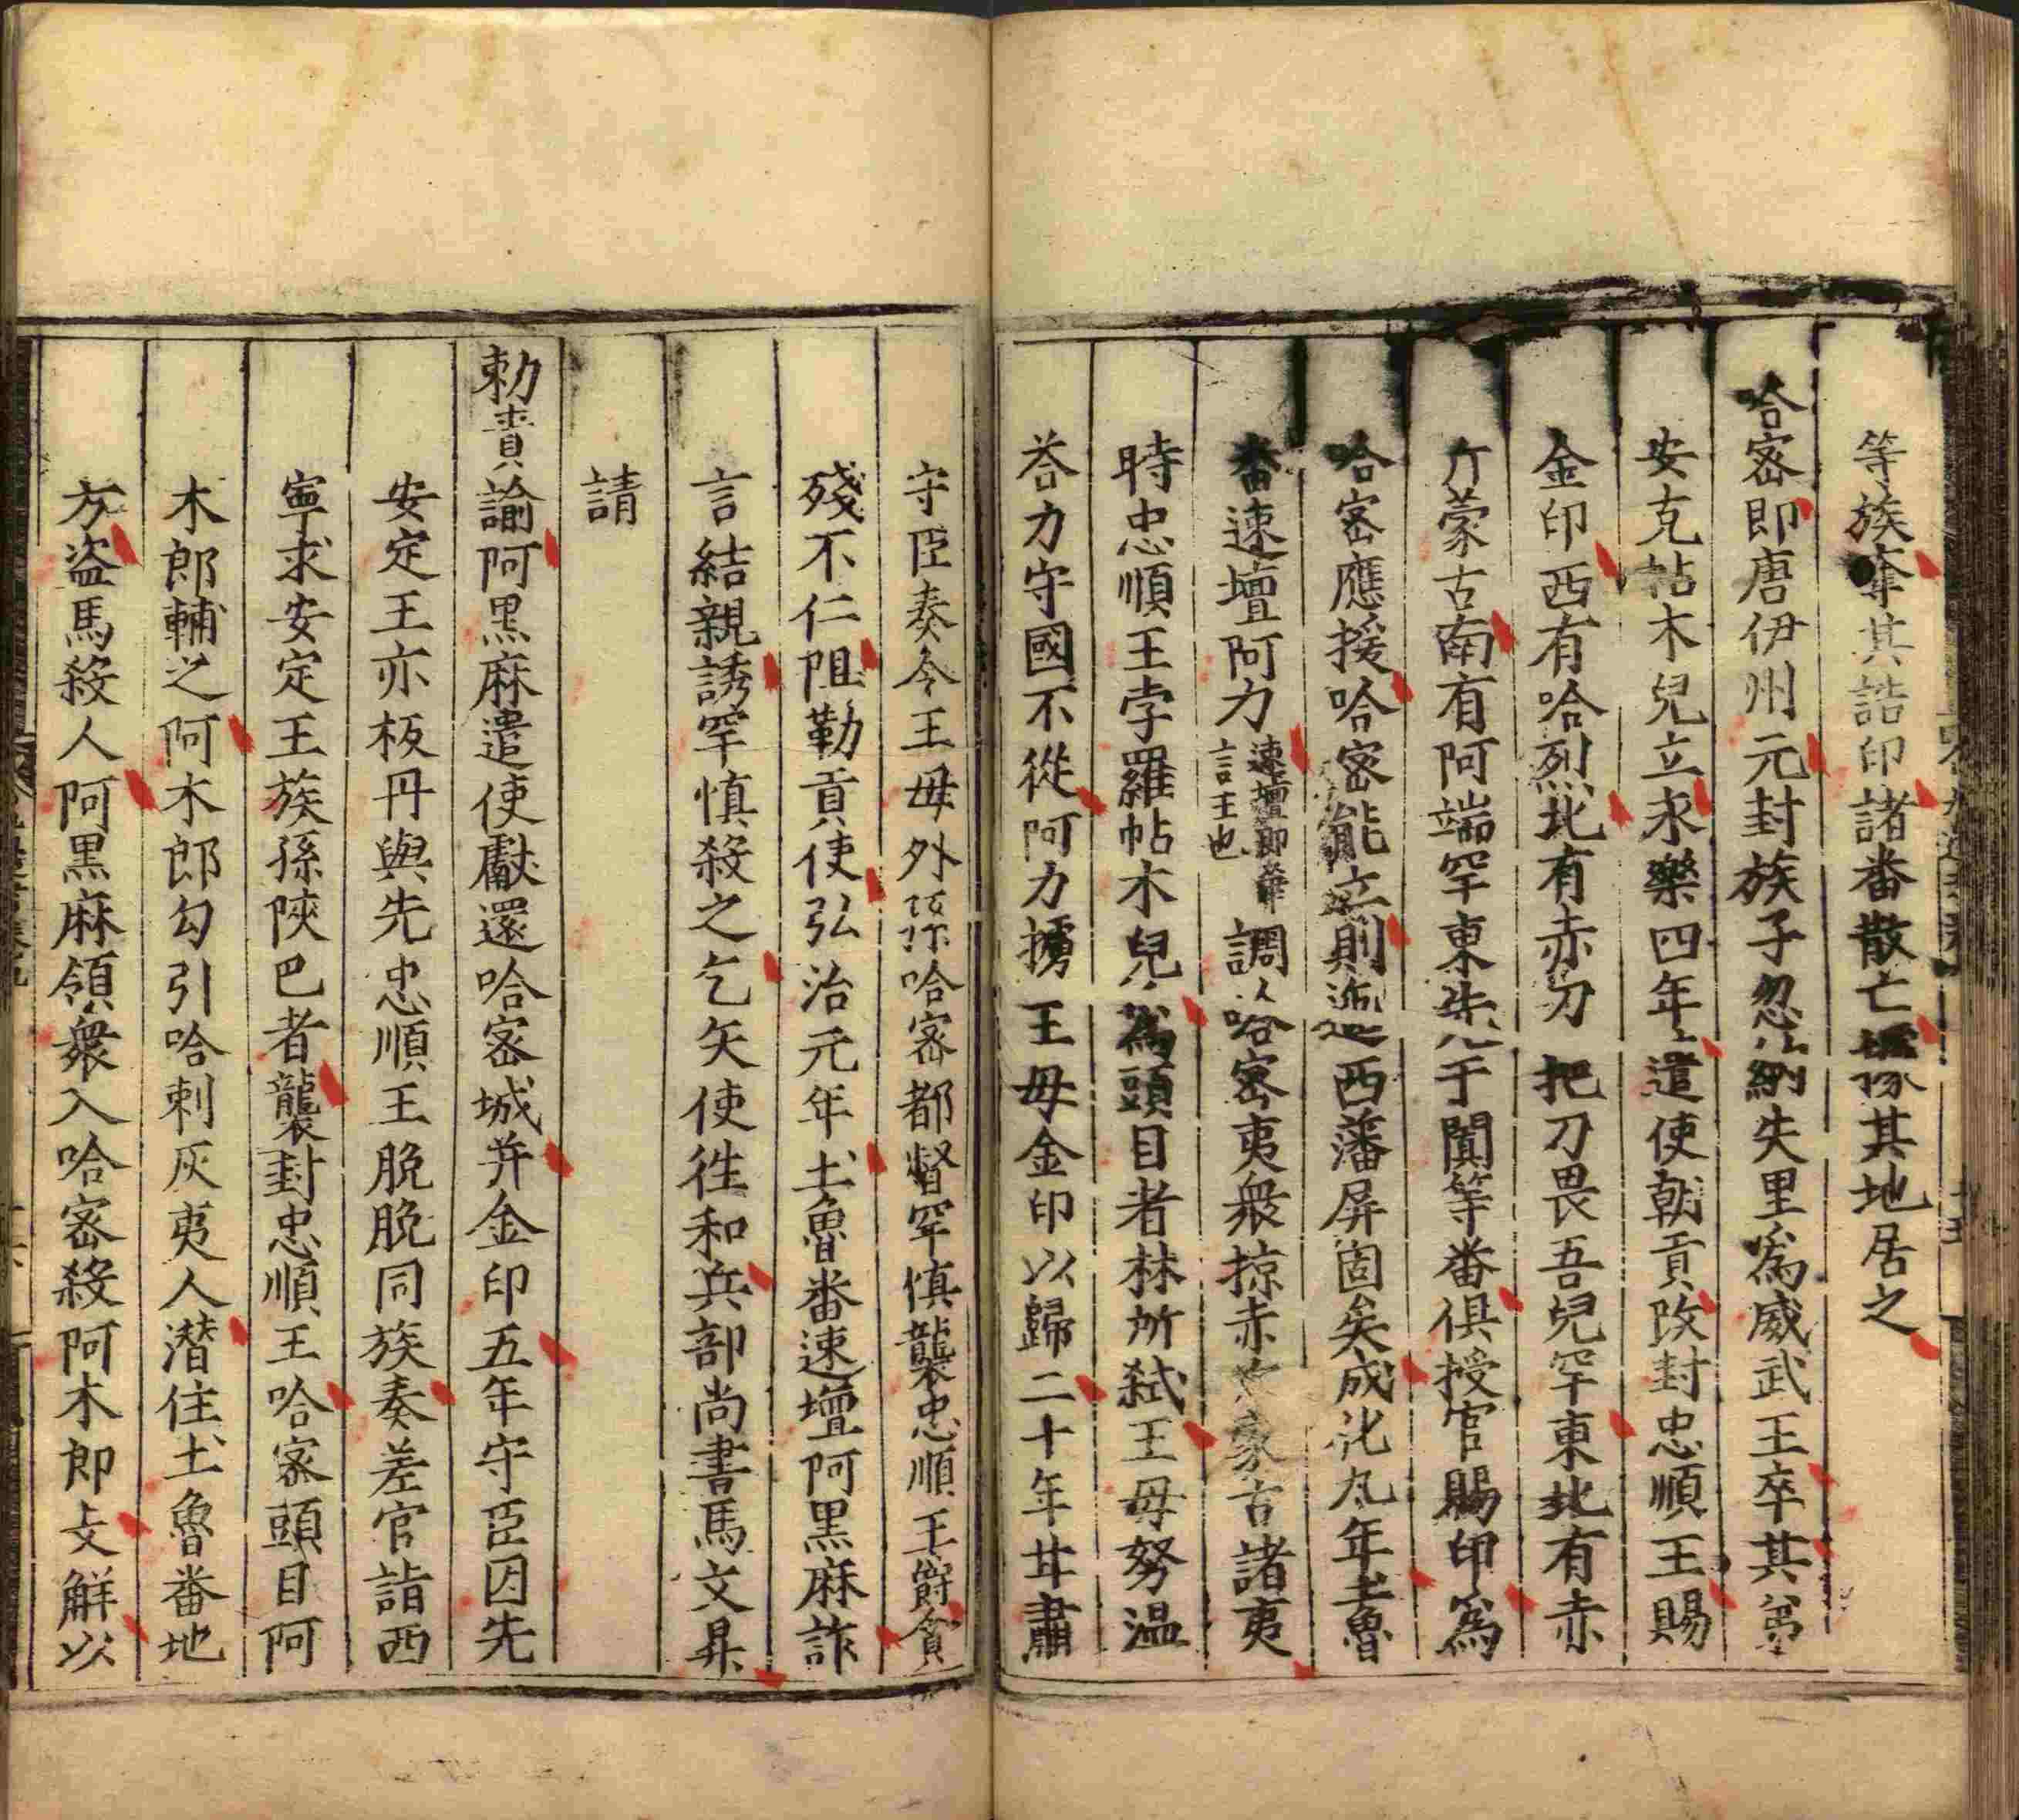 等族奪其誥印諸番散亡據其地居之
哈密即唐伊州元封族子忽納失里爲威武王卒其弟
安克帖木兒立永樂四年遣使朝貢改封忠順王賜
金印西有哈烈北有赤刀把刀畏吾兒罕東北有赤
斤蒙古南有阿端罕東先于闐等番俱授官賜印爲
哈密應援哈密能立則西藩屏固矣成化九年土魯
番速壇阿力速壇即華言王也調哈密夷衆掠赤蒙古諸夷
時忠順王孛羅帖木兒爲頭目者林所弑王母努温
荅力守國不從阿力擄王母金印以歸二十年甘肅
守臣奏今王母外孫哈密都督罕慎襲忠順王爵貪
殘不仁阻勒貢使弘治元年土魯番速壇阿黑麻詐
言結親誘罕慎殺之乞矢使徃和兵部尚書馬文昇
請
勑責諭阿黑麻遣使獻還哈密城并金印五年守臣因先
安定王亦板丹與先忠順王脫脫同族奏差官詣西
寧求安定王族孫陝巴者襲封忠順王哈密頭目阿
木郎輔之阿木郎勾引哈剌灰夷人潜住土魯番地
方盗馬殺人阿黑麻領衆入哈密殺阿木郎支觧以